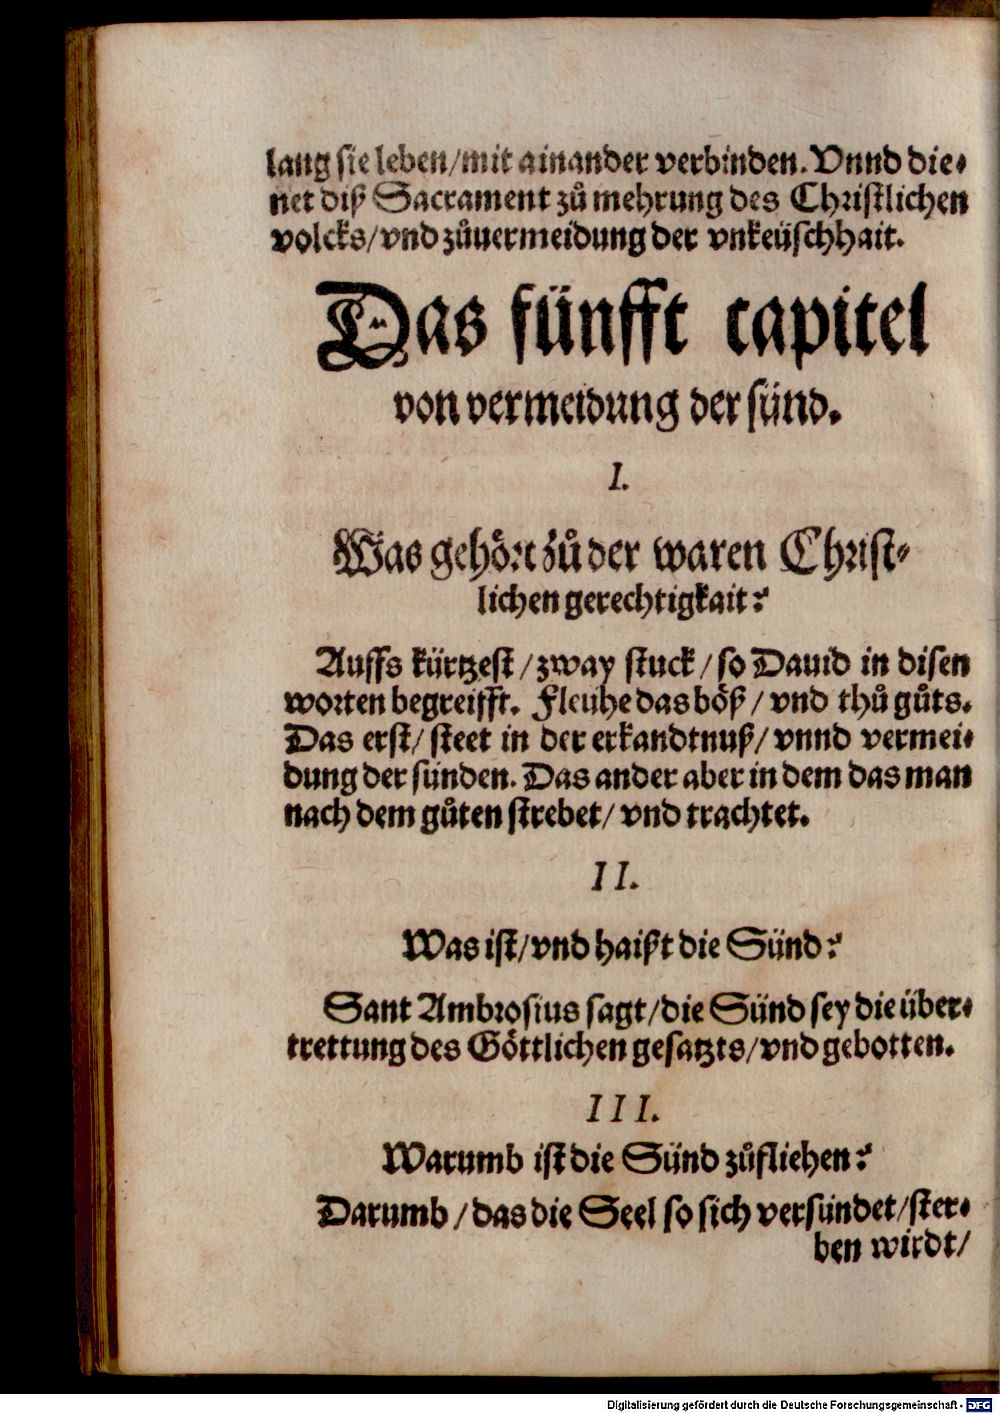 lang sie leben/mit ainander verbinden. Vnnd die⸗
net diß Sacrament zů mehrung des Christlichen
volcks/vnd zůuermeidung der vnkeüschhait.
Das fünfft capitel
von vermeidung der sünd.
I.
Was gehört zů der waren Christ⸗
lichen gerechtigkait?
Auffs kürtzest/zway stuck/so Dauid in disen
worten begreifft. Fleuhe das böß/vnd thů gůts.
Das erst/steet in der erkandtnuß/vnnd vermei⸗
dung der sünden. Das ander aber in dem das man
nach dem gůten strebet/vnd trachtet.
II.
Was ist/vnd haißt die Sünd?
Sant Ambrosius sagt/die Sünd sey die über⸗
trettung des Göttlichen gesatzts/vnd gebotten.
III.
Warumb ist die Sünd zůfliehen?
Darumb/das die Seel so sich versündet/ster⸗
ben wirdt/
Digitalisierung gefördert durch die Deutsche Forschungsgemeinschaft - DFG